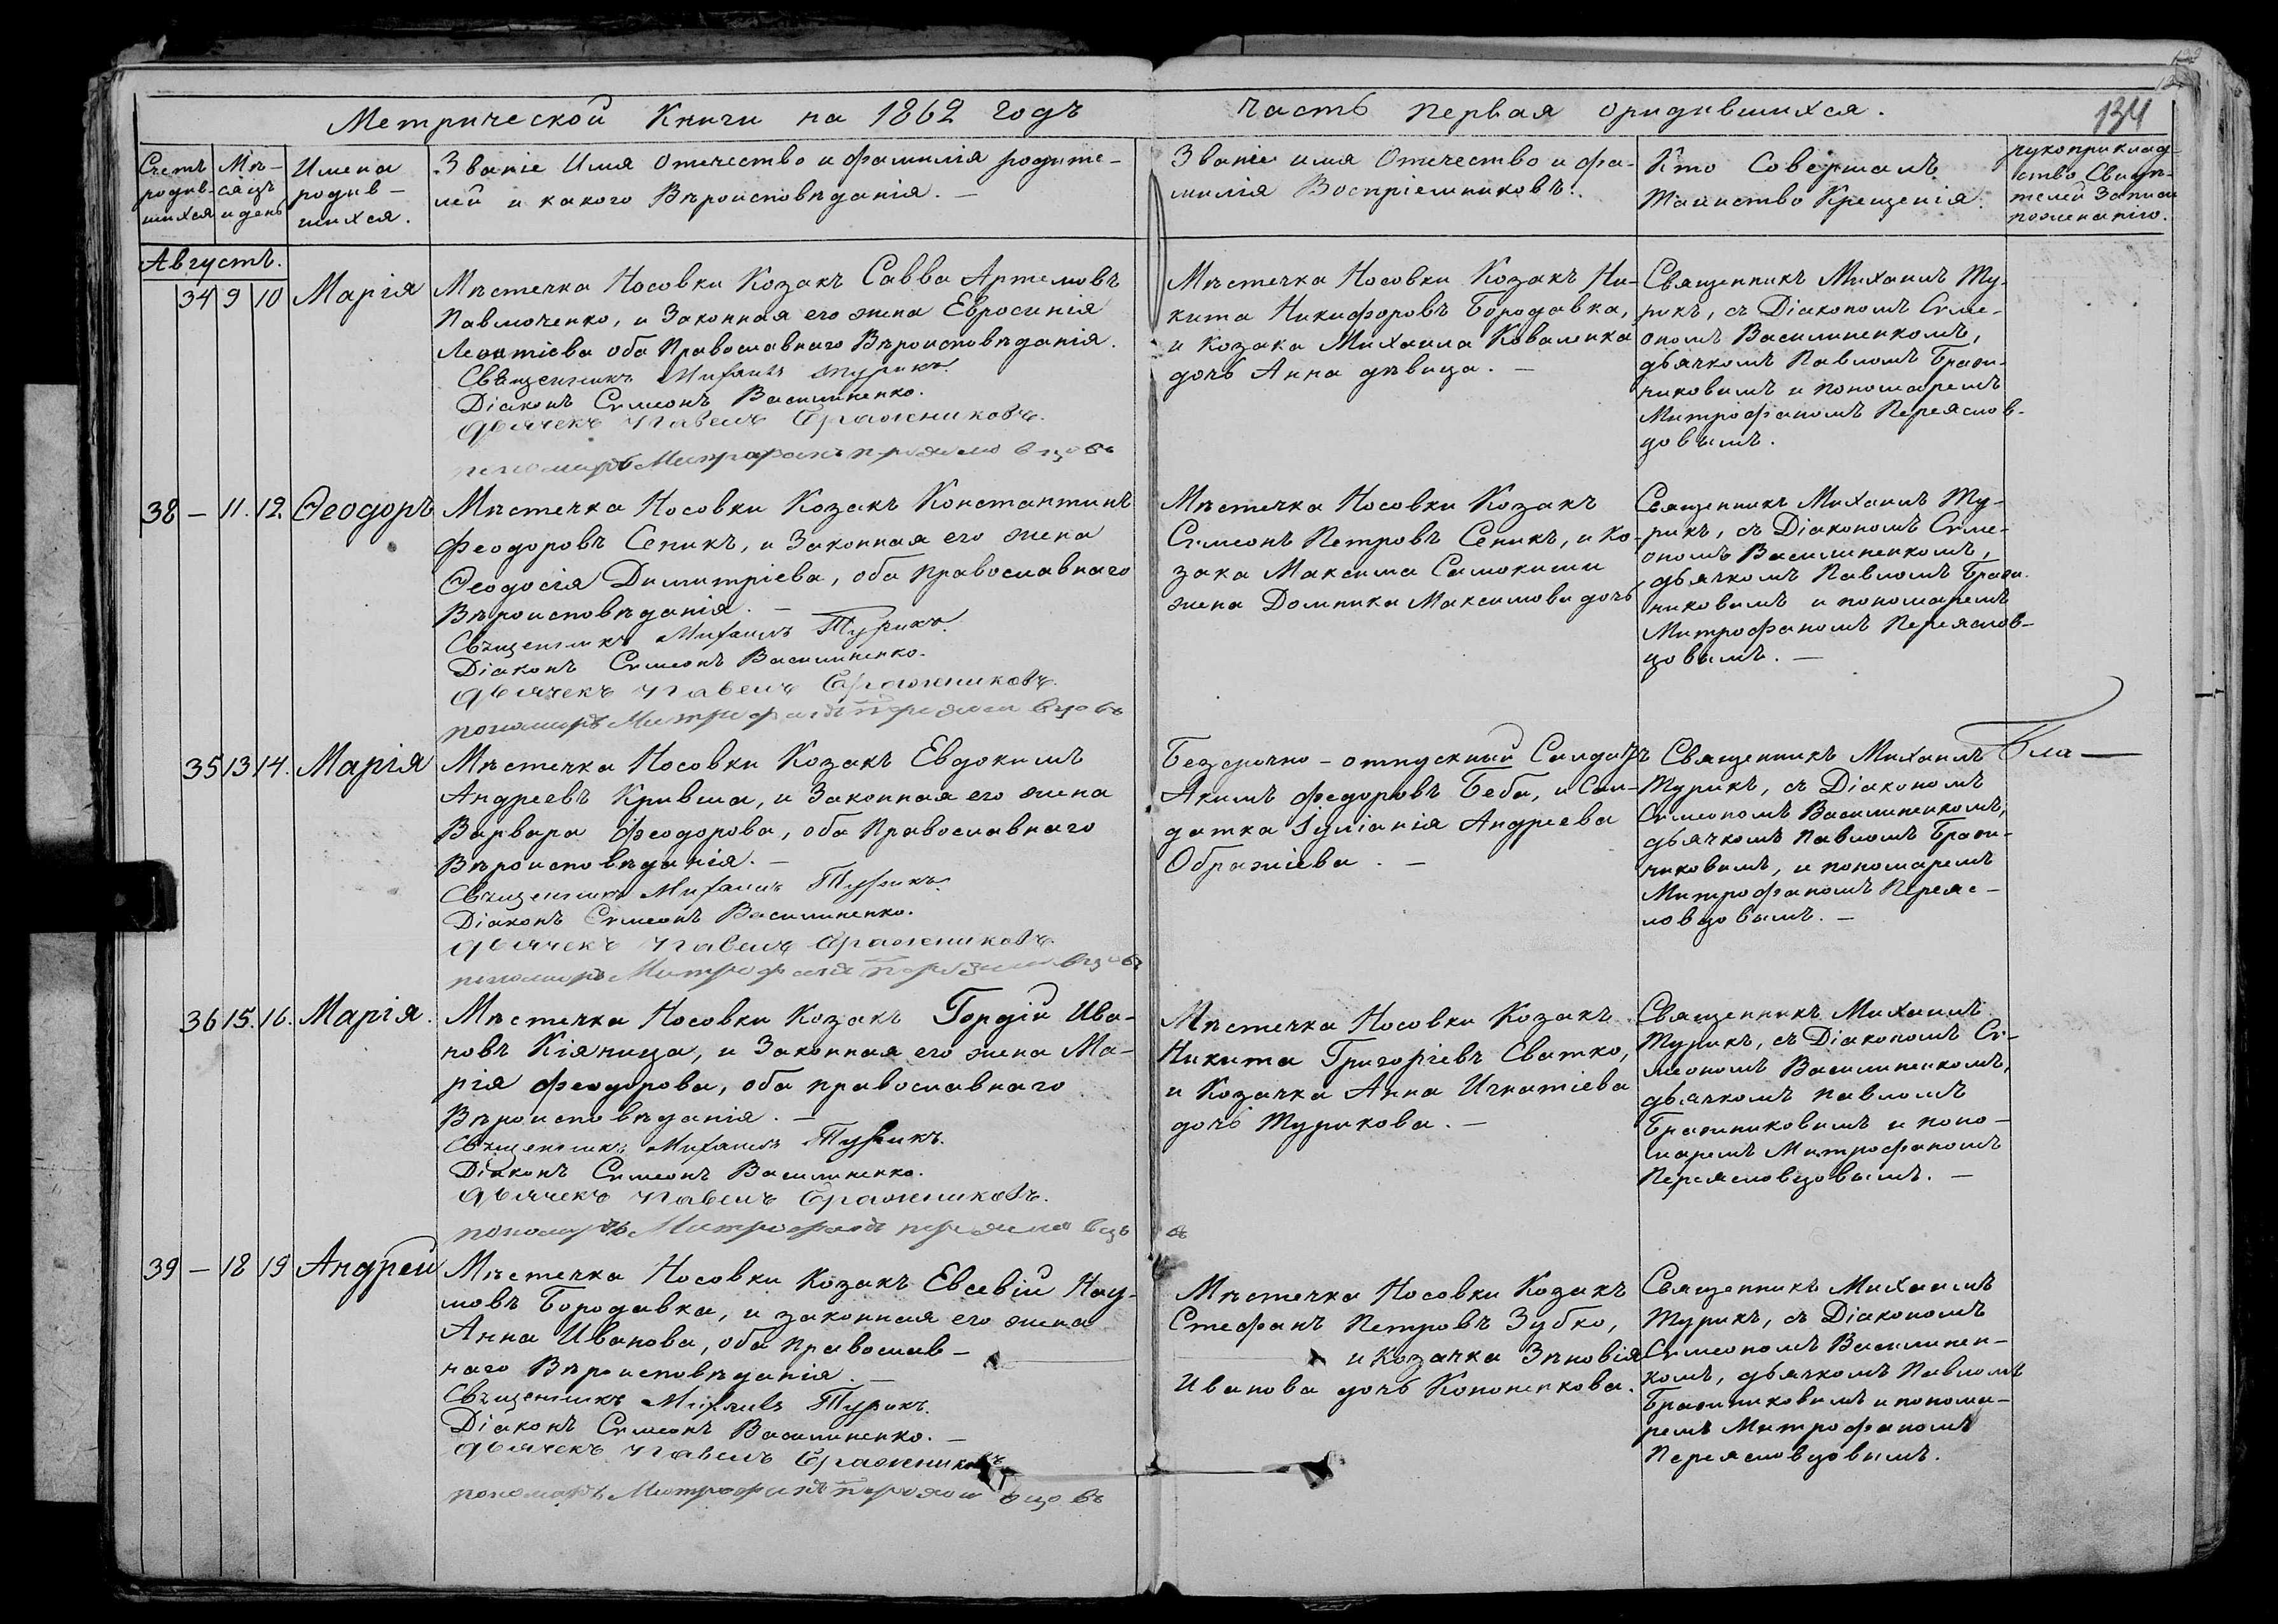 Метрической Книги на 1862 годъ
часть первая оридившихся.
134
Счетъ родив-шихся
Мѣ-сяцъ и день
Имена родив-шихся.
Званіе Имя Отечество и фамилія родите-
лей и какого Вѣроисповѣданія. —
Званіе имя Отечество и фа-
милія Воспріемниковъ.
Кто Совершалъ
Таинство Крещенія.
рукоприклад-
ство Свидѣ-
телей Записи
по желанію.
Августъ.
34 9 10 Марія
Мѣстечка Носовки Козакъ Савва Артемовъ
Павлюченко, и Законная его жена Евросинія
Леонтіева оба Православнаго Вѣроисповѣданія.
Священникъ Михаилъ Турикъ.
Діаконъ Симеонъ Василиненко.
Дьячекъ Павелъ Бражниковъ.
пономарь Митрофанъ Переяславцовъ
Мѣстечка Носовки Козакъ Ни-
кита Никифоровъ Бородавка,
и козака Михаила Коваленка
дочь Анна дѣвица. —
Священникъ Михаилъ Ту-
рикъ, съ Діакономъ Симе-
ономъ Василиненкомъ,
дьячкомъ Павломъ Бражи-
никовымъ и пономаремъ
Митрофаномъ Переяслов-
цовымъ.
38 — 11. 12. Ѳеодоръ
Мѣстечка Носовки Козакъ Константинъ
Феодоровъ Сепикъ, и Законная его жена
Ѳеодосія Димитріева, оба православнаго
Вѣроисповѣданія. —
Священникъ Михаилъ Турикъ.
Діаконъ Симеонъ Василиненко.
Дьячекъ Павелъ Бражниковъ.
пономарь Митрофанъ Переяславцовъ
Мѣстечка Носовки Козакъ
Симеонъ Петровъ Сепикъ, и ко-
зака Максима Самокиши
жена Домника Максимова дочь
Священникъ Михаилъ Ту-
рикъ, съ Діакономъ Симе-
ономъ Василиненкомъ,
дьячкомъ Павломъ Бражи-
никовымъ и пономаремъ
Митрофаномъ Переяслов-
цовымъ. —
35 13 14. Марія
Мѣстечка Носовки Козакъ Евдокимъ
Андреевъ Кривша, и Законная его жена
Варвара Феодорова, оба Православнаго
Вѣроисповѣданія. —
Священникъ Михаилъ Турикъ.
Діаконъ Симеонъ Василиненко.
Дьячекъ Павелъ Бражниковъ.
пономарь Митрофанъ Переяславцовъ
Безсрочно-отпускный Салдатъ
Акимъ Федоровъ Беба, и Сал-
датка Іуліанія Андреева
Ображіева. —
Священникъ Михаилъ
Турикъ, съ Діакономъ
Симеономъ Василиненкомъ,
дьячкомъ Павломъ Бражи-
никовымъ, и пономаремъ
Митрофаномъ Переяс-
ловцовымъ. —
36 15. 16. Марія.
Мѣстечка Носовки Козакъ Гордій Ива-
новъ Кіяница, и Законная его жена Ма-
рія Феодорова, оба православнаго
Вѣроисповѣданія. —
Священникъ Михаилъ Турикъ.
Діаконъ Симеонъ Василиненко.
Дьячекъ Павелъ Бражниковъ.
пономарь Митрофанъ переяславцовъ
Мѣстечка Носовки Козакъ
Никита Григоріевъ Сватко,
и Козачка Анна Игнатіева
дочь Турикова. —
Священникъ Михаилъ
Турикъ, съ Діакономъ Си-
меономъ Василиненкомъ,
дьячкомъ павломъ
Бражниковымъ и поно-
маремъ Митрофаномъ
Переясловцовымъ. —
39 — 18 19 Андрей
Мѣстечка Носовки Козакъ Евсевій Нау-
мовъ Бородавка, и законная его жена
Анна Иванова, оба православ-
наго Вѣроисповѣданія. —
Священникъ Михаилъ Турикъ.
Діаконъ Симеонъ Василиненко. —
Дьячекъ Павелъ Бражниковъ
пономарь Митрофанъ Переяславцовъ
Мѣстечка Носовки Козакъ
Стефанъ Петровъ Зубко,
и Козачка Зѣновія
Иванова дочь Кононенкова.
Священникъ Михаилъ
Турикъ, съ Діакономъ
Симеономъ Василинен-
комъ, дьячкомъ Павломъ
Бражниковымъ и понома-
ремъ Митрофаномъ
Переясловцовымъ.